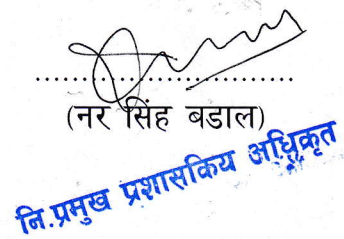 (नर सिंह बडाल)
नि.प्रमुख प्रशासकिय अधिकृत